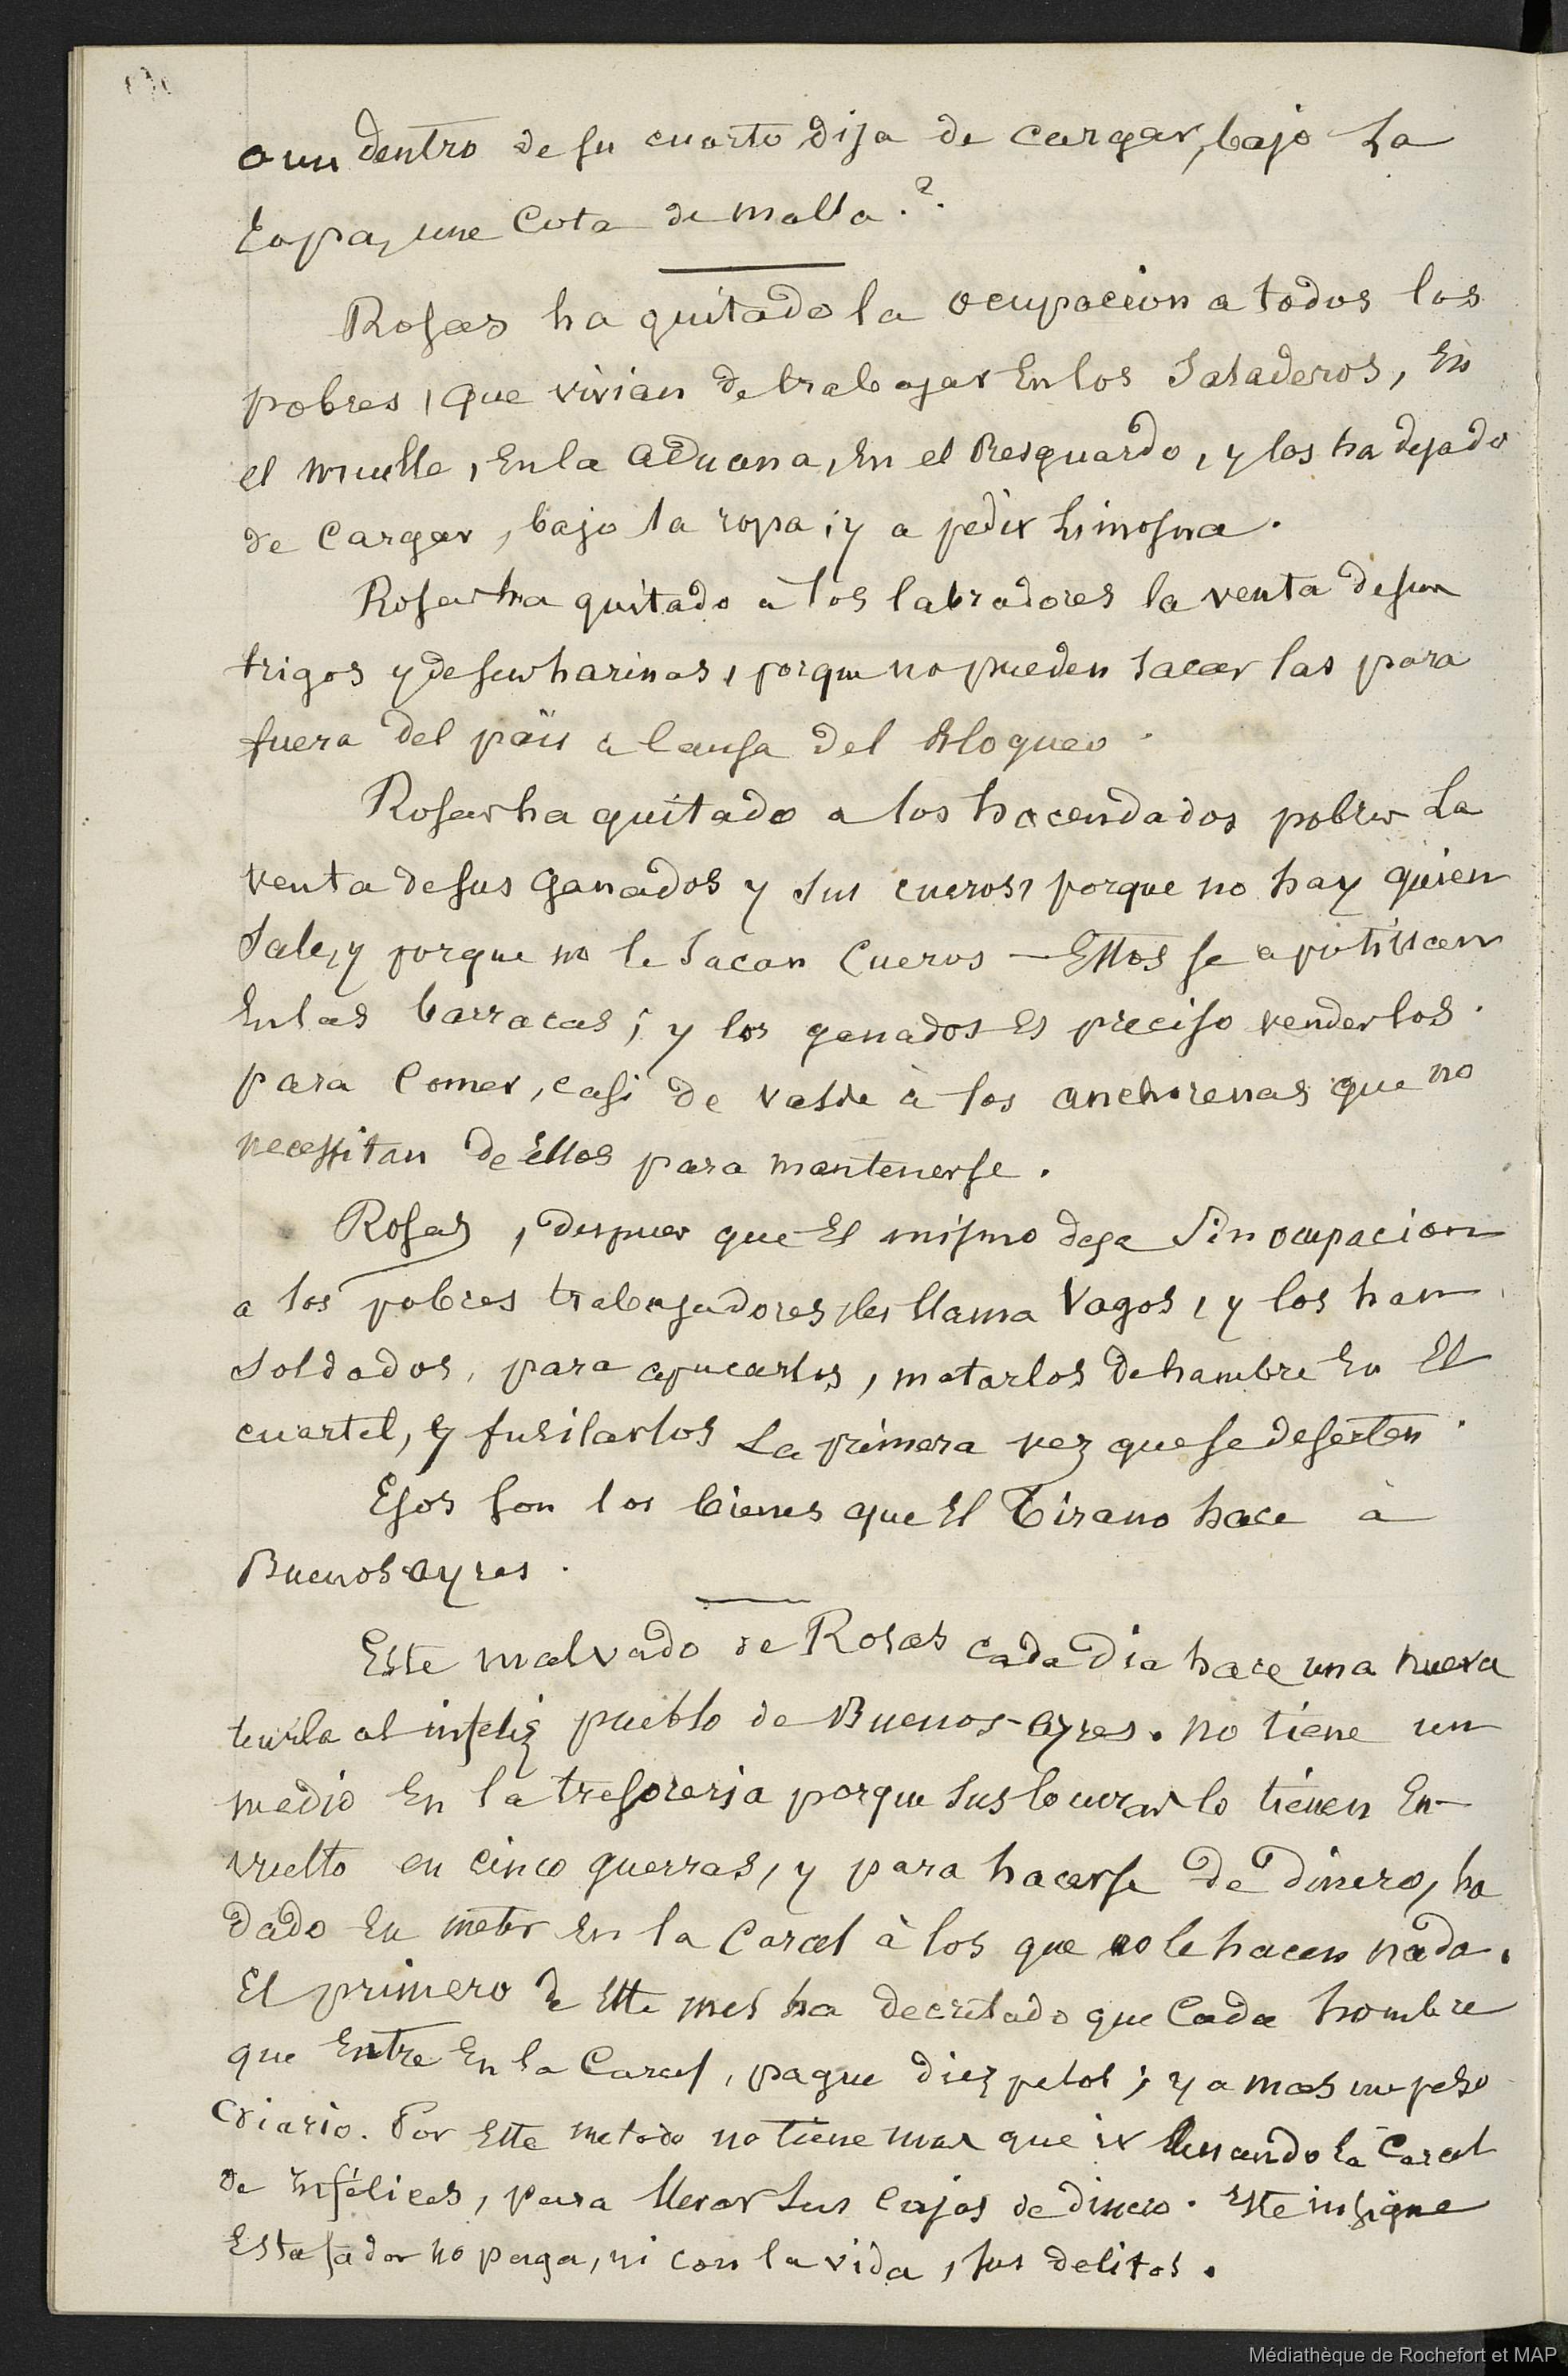 aun dentro de su cuarto dija de cargar, bajo la
ropa, une cota de malla.?
Rosas ha quitado la ocupacion a todos los
pobres, que vivian de trabajar En los Saladeros, En
el muelle, En la aduana, En el Resguardo, y los ha dejado
de cargar, bajo la ropa; y a pedir limosna.
Rosas ha quitado a los labradores la venta de sus
trigos y de sus harinas, porque no pueden sacar las para
fuera del païs a causa del Bloqueo.
Rosas ha quitado a los hacendados pobres la
venta de sus ganados y sus cueros, porque no hay quien
Sale, y porque no le sacan Cueros — Ellos se
En las barracas; y los ganados Es preciso venderlos.
para comer, casi de valde à los anchorenas que no
necessitan de Ellos para mantenerse.
Rosas, despues que El mismo deja Sin ocupacion
a los pobres trabajadores, les llama Vagos, y los han
Soldados, para apucarlos, matarlos de hambre En El
cuartel, y fusilarlos La primera vez que se deserten.
Esos son los bienes que El Tirano hace à
Buenos ayres.
Este malvado de Rosas cada dia hace una nueva
burla al infeliz pueblo de Buenos-ayres. no tiene un
medio En la tresoreria porque sus locuras lo tienen En-
vuelto en cinco guerras, y para hacerse de dinero, ha
dado En meter En la Carcel à los que no le hacen nada.
El primero de Este mes ha decretado que Cada hombre
que Entre En la Carcel, pague diez pesos; y a mas un peso
diario. Por Este metodo no tiene mas que ir llenando la Carcel
de Infélices, para llenar sus cajas de dinero. Este insigne
Estafador no paga, ni con la vida, sus delitos.
Médiathèque de Rochefort et MAP